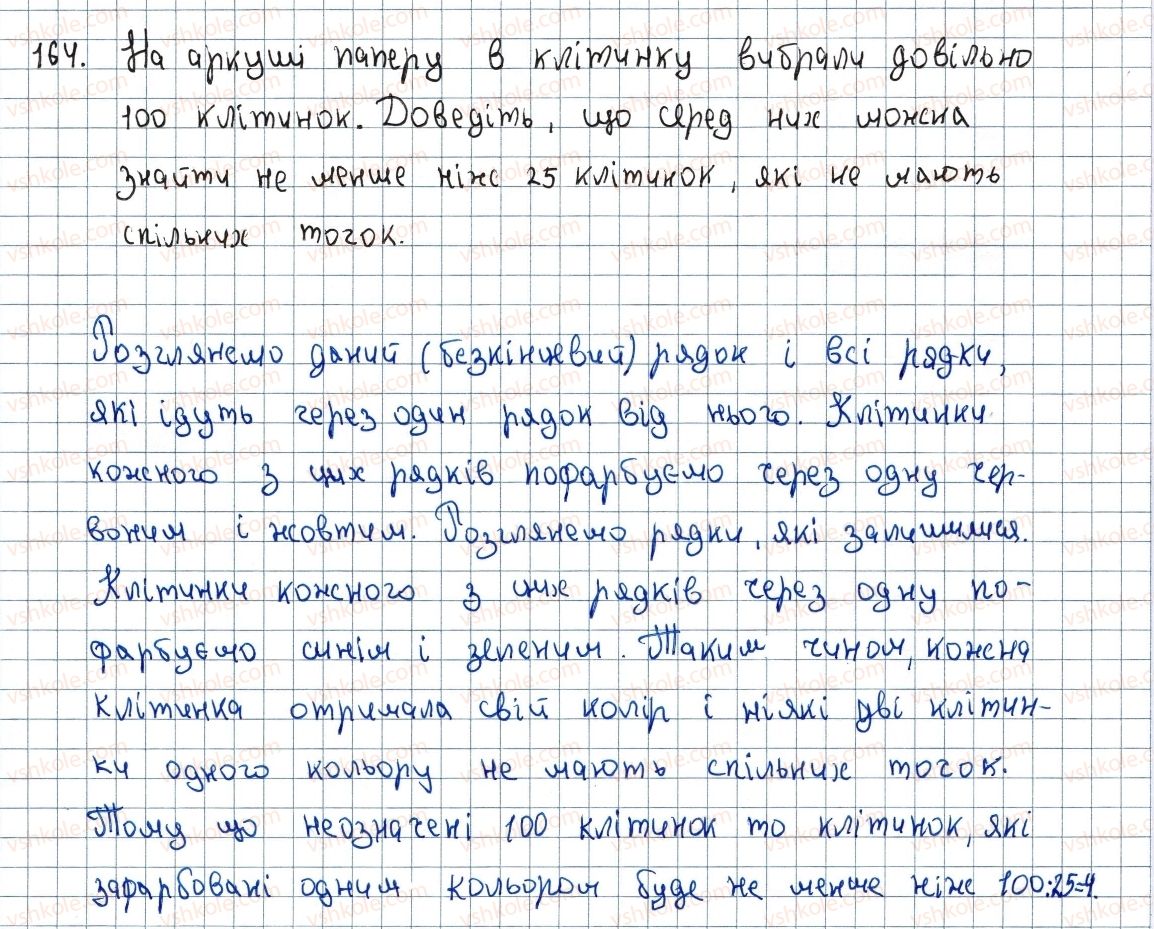 164. На аркуші паперу в клітинку вибрали довільно
100 клітинок. Доведіть, що серед них можна
знайти не менше ніж 25 клітинок, які не мають
спільних точок.
Розглянемо даний (безкінцевий) рядок і всі рядки,
які ідуть через один рядок від нього. Клітинки
кожного з цих рядків пофарбуємо через одну чер-
воним і жовтим. Розглянемо рядки, які залишилися.
Клітинки кожного з цих рядків через одну по-
фарбуємо синім і зеленим. Таким чином, кожна
клітинка отримала свій колір і ніякі дві клітин-
ки одного кольору не мають спільних точок.
Тому що неозначені 100 клітинок то клітинок, які
зафарбовані одним кольором буде не менше ніж 100:25=4.